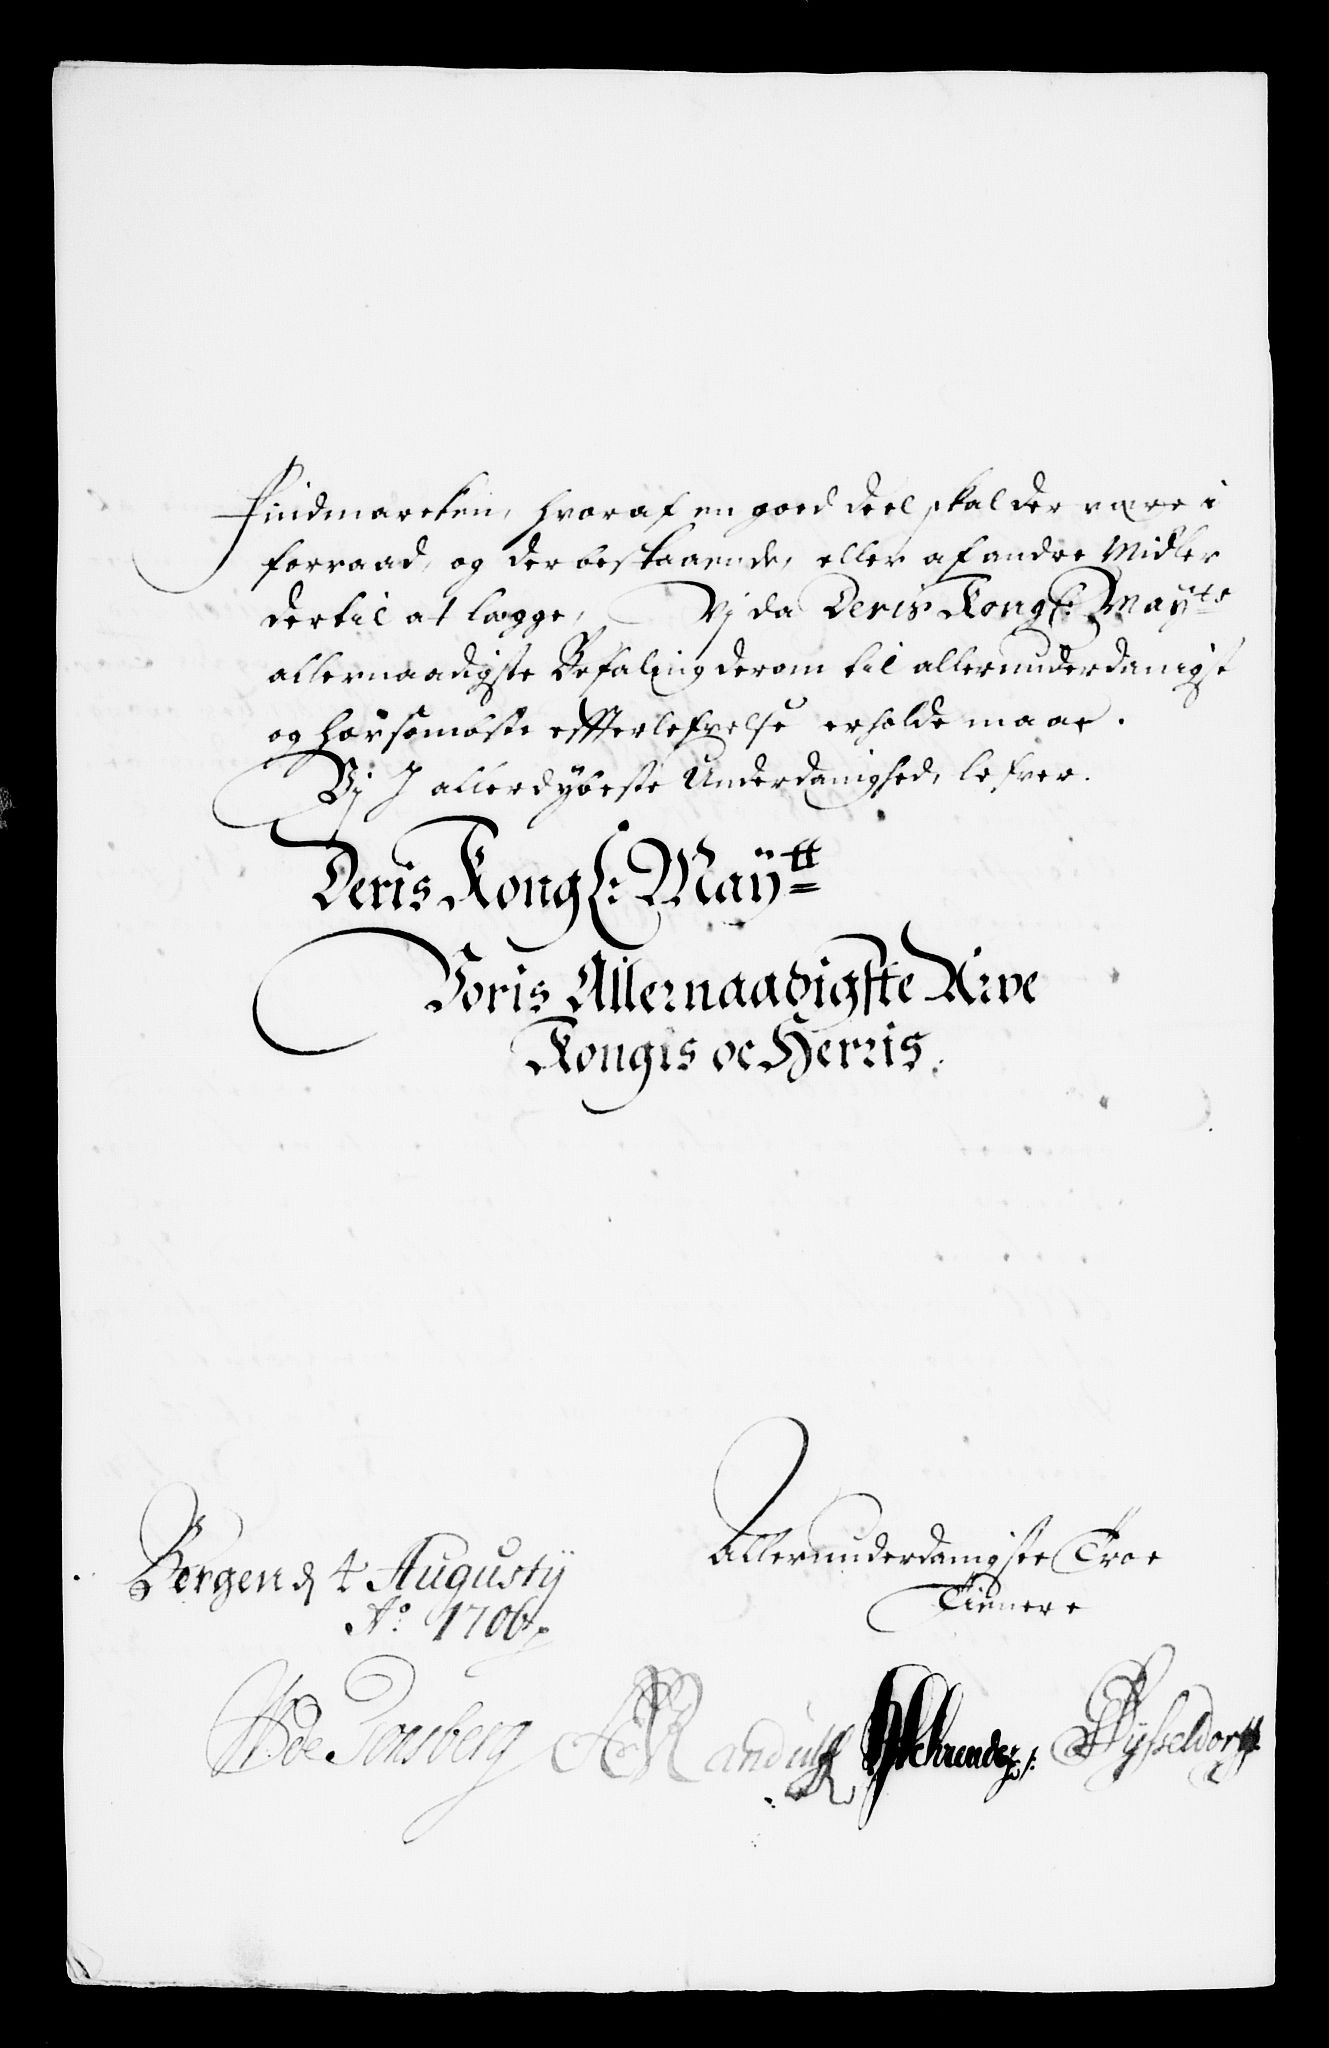 Findmarcken, hvoraf en goed deel skal der være i
forraad, og der bestaaende, eller af andre Midler
dertil at lægge, Vj da Deris Kongl: Mayts
allernaadigste Befaling derom til allerunderdanigst
og hørsombste effterlefvelse erholde maae.
Vj J allerdybeste Underdanighed, lefver.
Deris Kongl: Maÿtt
Voris Allernaadigste Arve
Kongis oc Herris
Allerunderdanigste Troe
Tienere
Bergen d 4 Augustÿ
Ao 1706
de Tonsberg Randulff Schrender Wÿsseldorff